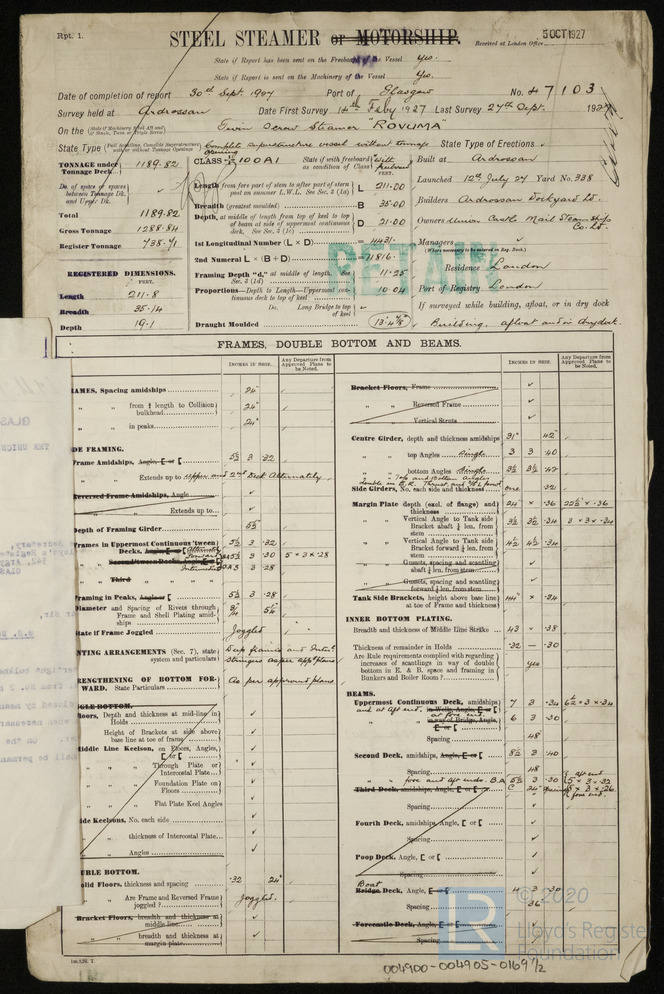 Rpt. 1.
STEEL STEAMER or MOTORSHIP.
5 OCT 1927
Received at London Office
State if Report has been sent on the Freeboard of the Vessel Yes.
State if Report is sent on the Machinery of the Vessel Yes.
Date of completion of report 30th Sept. 1907 Port of Glasgow No. 47103
Survey held at Ardrossan Date First Survey 14th Feby 1927 Last Survey 27th Sept. 1927
On the Twin Screw Steamer "ROVUMA"
State Type Complete superstructure vessel without tonnage opening State Type of Erections
TONNAGE under Tonnage Deck 1189.82
CLASS 100A1 State if with freeboard as condition of Class with freeboard
Built at Ardrossan
Launched 12th July 27 Yard No. 338
Builders Ardrossan Dockyard Ld.
Owners Union Castle Mail Steamship Co. Ld.
Managers
Residence London
Port of Registry London
If surveyed while building, afloat, or in dry dock
Building, afloat and in drydock.
Do. of space or spaces between Tonnage Dk. and Upper Dk.
Total 1189.82
Gross Tonnage 1288.84
Register Tonnage 738.71
REGISTERED DIMENSIONS.
FEET.
Length 211.8
Breadth 35.14
Depth 19.1
Length from fore part of stem to after part of stern post on summer L.W.L. See Sec. 3 (1a) L 211.00
Breadth (greatest moulded) B 35.00
Depth, at middle of length from top of keel to top of beam at side of uppermost continuous deck. See Sec. 3 (1c) D 21.00
1st Longitudinal Number (L × D) = 4431.
2nd Numeral L × (B + D) = 11816.
Framing Depth "d," at middle of length. See Sec. 3 (1d) 11.25
Proportions—Depth to Length—Uppermost continuous deck to top of keel 10.04
Do. Long Bridge to top of keel
Draught Moulded 13'.4⅞"
RETAIN
FRAMES, DOUBLE BOTTOM AND BEAMS.
INCHES IN SHIP. Any Departure from Approved Plans to be Noted.
INCHES IN SHIP. Any Departure from Approved Plans to be Noted.
RAMES, Spacing amidships 24"
" " from ⅕ length to Collision bulkhead 24"
" " in peaks 24"
DE FRAMING.
Frame Amidships, Angle, E or [ 5½ 3 .32
" " Extends up to upper and 2nd Deck Alternately
Reversed Frame Amidships, Angle
" " Extends up to
Depth of Framing Girder 5½
Frames in Uppermost Continuous 'tween Decks, Angle, E or [ 5½ 3 .32
Second 'tween Decks, Angle, E or [ 5½ 3 .30 5 × 3 × .28
Third " " " 3 .28
Framing in Peaks, Angle or [ 5½ 3 .28
Diameter and Spacing of Rivets through Frame and Shell Plating amidships ¾ 5¼
State if Frame Joggled Joggled
NTING ARRANGEMENTS (Sec. 7), state system and particulars Deep frames and Intl. stringers as per appd plans
RENGTHENING OF BOTTOM FORWARD. State Particulars As per approved plans
GLE BOTTOM.
loors, Depth and thickness at mid-line in Holds
" Height of Brackets at side above base line at toe of frame
iddle Line Keelson, on Floors, Angles, E or [
" " Through Plate or Intercostal Plate
" " Foundation Plate on Floors
" " Flat Plate Keel Angles
ide Keelsons, No. each side
" " thickness of Intercostal Plate
" " Angles
UBLE BOTTOM.
olid Floors, thickness and spacing .32 24"
" Are Frame and Reversed Frame joggled? Joggled.
Bracket Floors, breadth and thickness at middle line
" " breadth and thickness at margin plate
Bracket Floors, Frame
" " Reversed Frame
" " Vertical Struts
Centre Girder, depth and thickness amidships 31" .42
" " top Angles Single 3 3 .40
" " bottom Angles Single 3½ 3½ .42
Side Girders, No. each side and thickness one .32
Margin Plate depth (excl. of flange) and thickness 24" × .36 22½ × .36
" " Vertical Angle to Tank side Bracket abaft ¼ len. from stem 3½ 3½ .34 3 × 3 × .34
" " Vertical Angle to Tank side Bracket forward ¼ len. from stem 4½ 4½ .34
" " Gussets, spacing and scantling abaft ¼ len. from stem
" " Gussets, spacing and scantling forward ¼ len. from stem
Tank Side Brackets, height above base line at toe of Frame and thickness 44" × .34
INNER BOTTOM PLATING.
Breadth and thickness of Middle Line Strake 43 × .38
Thickness of remainder in Holds .32 — .30
Are Rule requirements complied with regarding increases of scantlings in way of double bottom in E. & B. space and framing in Bunkers and Boiler Room? yes
BEAMS.
Uppermost Continuous Deck, amidships 7 3 .34 6½ × 3 × .34
and at aft end. in Wells, Angle, E or [
at fore end. in way of Bridge, Angle, E or [ 6 3 .30
Spacing 48"
Second Deck, amidships, Angle, E or [ 8½ 3 .40
Spacing 48
" " fore and aft ends. B.A 5½ 3 .30 aft end 5 × 3 × .32
Third Deck, amidships, Angle, E or [ 24" spacing 5 × 3 × .26 fore end.
Spacing
Fourth Deck, amidships, Angle, E or [
Spacing
Poop Deck, Angle, E or [
Spacing
Boat
Bridge Deck, Angle, E or [ 4 3 .30
Spacing 36"
Forecastle Deck, Angle, E or [
Spacing
© 2020
Lloyd's Register
Foundation
004900-004905-0169½